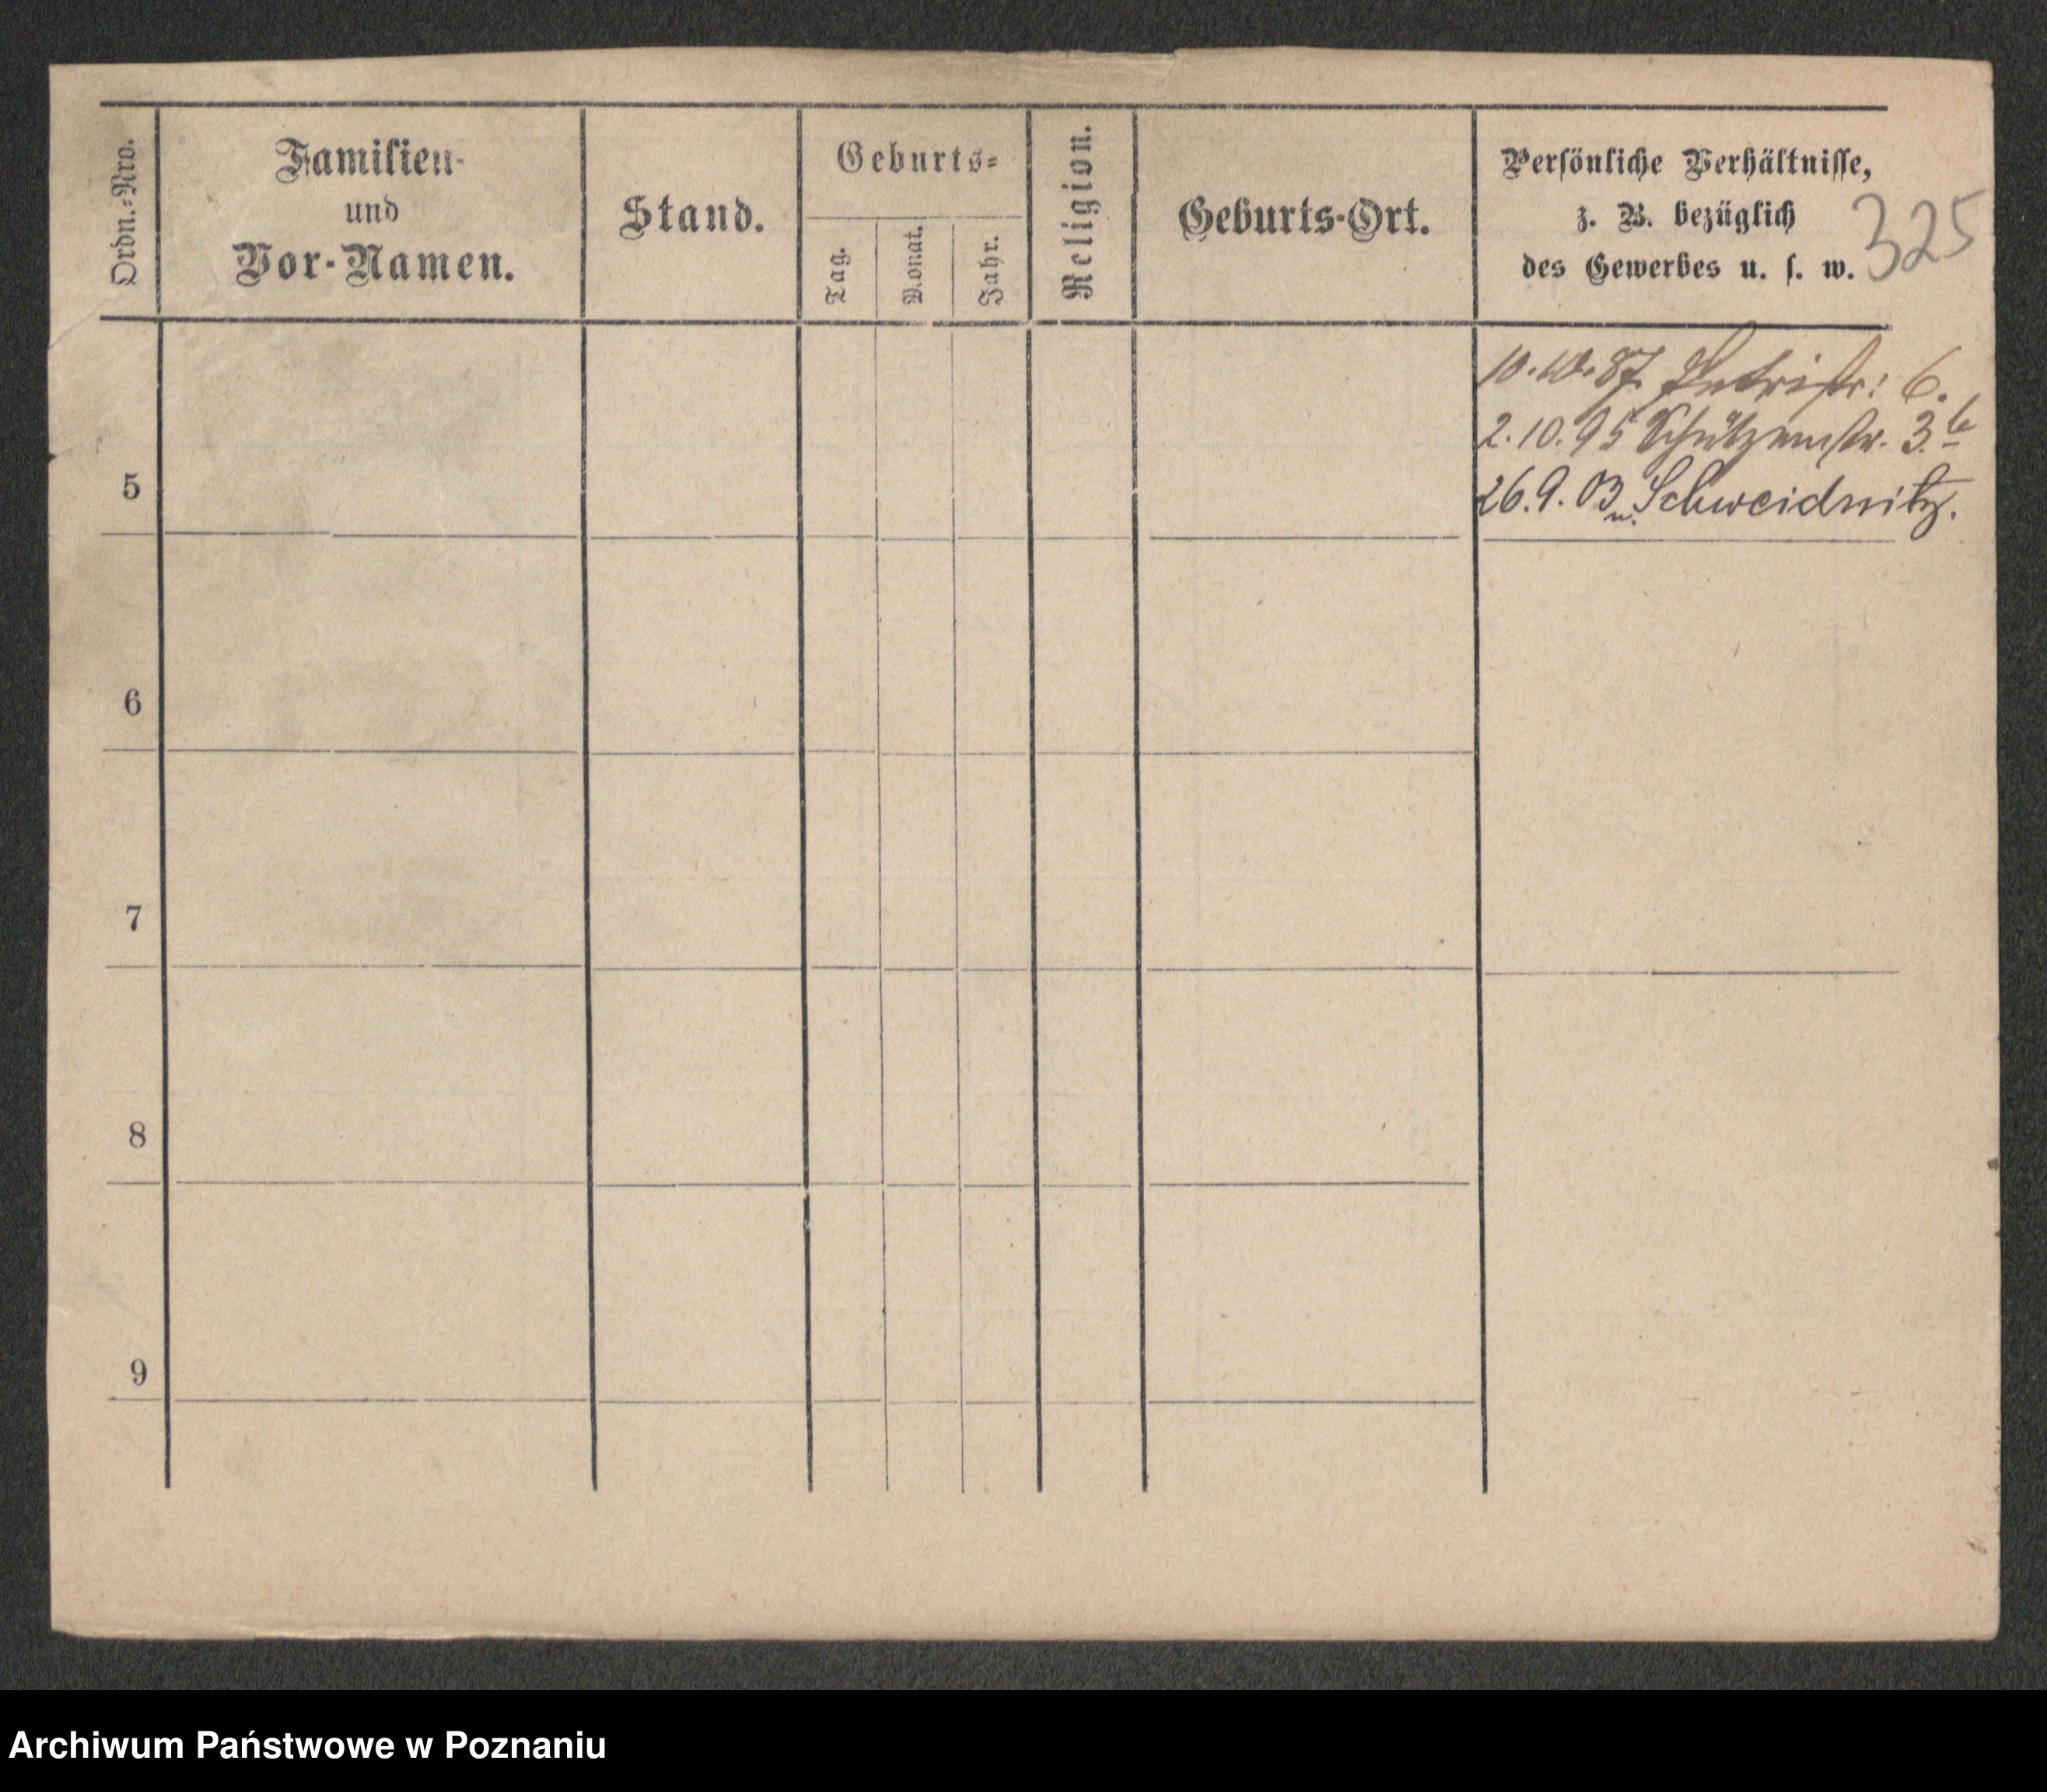 Ordn.-Nro.
Familien-
und
Vor-Namen.
Stand.
Geburts-
Tag.
Monat.
Jahr.
Religion.
Geburts-Ort.
Persönliche Verhältnisse,
z. B. bezüglich
des Gewerbes u. s. w.
325
10.10.87. 6.
2.10.95 Schützenstr. 3.b
26.9.03 n. Schweidnitz.
5
6
7
8
9
Archiwum Państwowe w Poznaniu